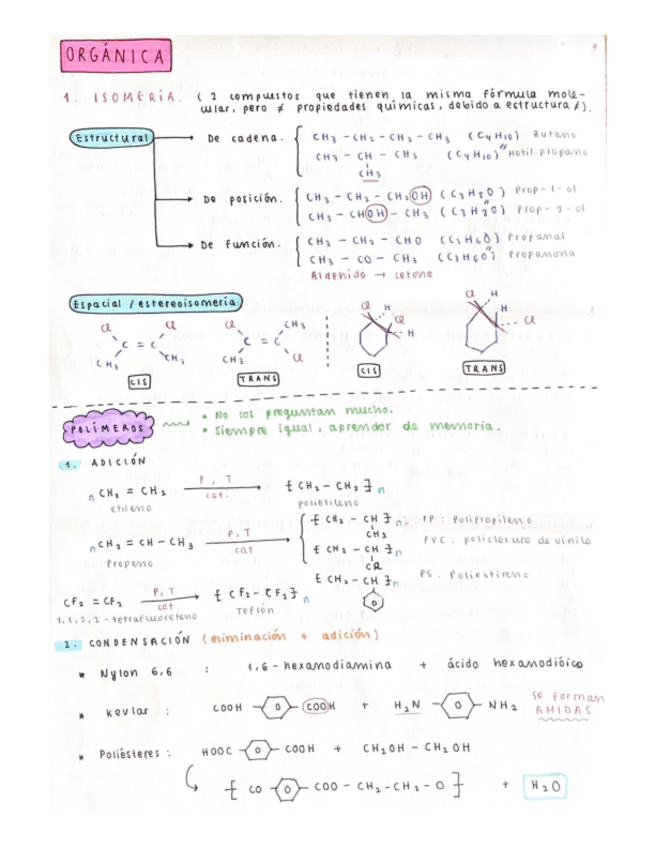 ORGÁNICA
1. ISOMERÍA. ( 2 compuestos que tienen la misma fórmula mole-
ular, pero ≠ propiedades químicas, debido a estructura ≠).
Estructural
De cadena. CH3 - CH2 - CH2 - CH3 (C4H10) Butano
CH3 - CH - CH3 (C4H10) Metil propano
CH3
De posición. CH3 - CH2 - CH2OH (C3H8O) Prop-1-ol
CH3 - CHOH - CH3 (C3H8O) Prop-2-ol
De función. CH3 - CH2 - CHO (C3H6O) Propanal
CH3 - CO - CH3 (C3H6O) Propanona
Aldehido → cetona
Espacial / estereoisomería
Cl Cl Cl CH3 Cl H Cl H
C = C C = C Cl H H Cl
CH3 CH3 CH3 Cl
CIS TRANS CIS TRANS
POLÍMEROS
• No los preguntan mucho.
• Siempre igual, aprender de memoria.
1. ADICIÓN
n CH2 = CH2 P, T cat. [ CH2 - CH2 ] n
etileno polietileno
n CH2 = CH - CH3 P, T cat [ CH2 - CH ] n PP: Polipropileno
CH3
Propeno [ CH2 - CH ] n PVC: policloruro de vinilo
Cl
[ CH2 - CH ] n PS. Poliestireno
CF2 = CF2 P, T cat [ CF2 - CF2 ] n
1,1,2,2-tetrafluoreteno Teflón
2. CONDENSACIÓN (eliminación + adición)
* Nylon 6,6 : 1,6-hexanodiamina + ácido hexanodióico
* kevlar : COOH COOH + H2N NH2 se forman
AMIDAS
* Poliésteres : HOOC COOH + CH2OH - CH2OH
[ CO COO - CH2 - CH2 - O ] + H2O